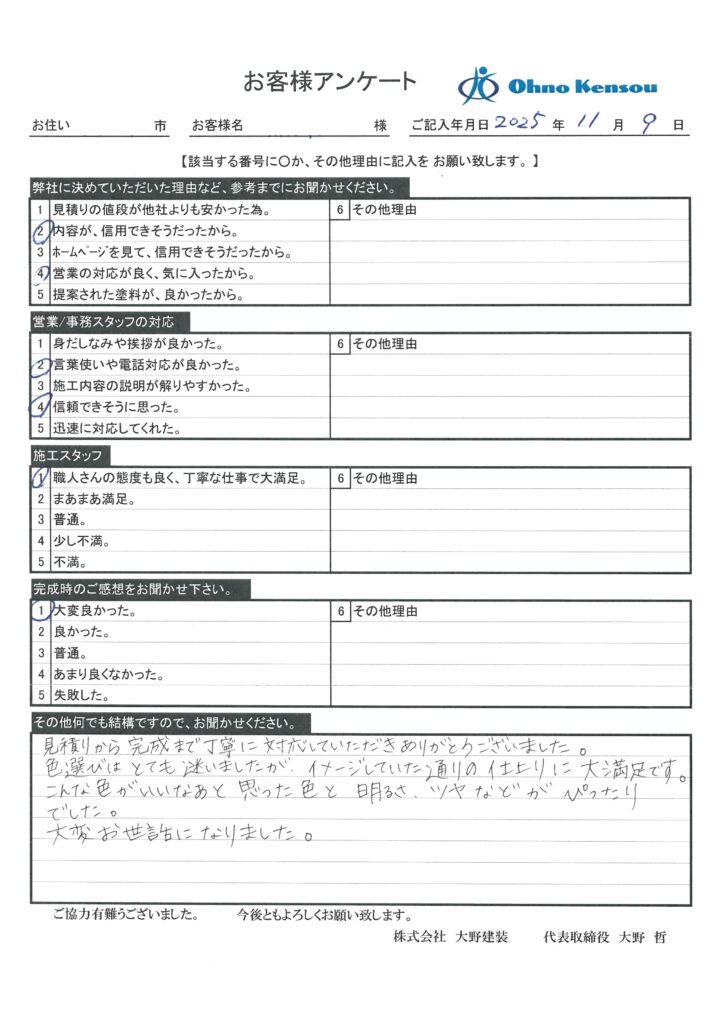 お客様アンケート
Ohno Kensou
お住い 市 お客様名 様 ご記入年月日 2025 年 11 月 9 日
【該当する番号に〇か、その他理由に記入を お願い致します。】
弊社に決めていただいた理由など、参考までにお聞かせください。
1 見積りの値段が他社よりも安かった為。 6 その他理由
2 内容が、信用できそうだったから。
3 ホームページを見て、信用できそうだったから。
4 営業の対応が良く、気に入ったから。
5 提案された塗料が、良かったから。
営業/事務スタッフの対応
1 身だしなみや挨拶が良かった。 6 その他理由
2 言葉使いや電話対応が良かった。
3 施工内容の説明が解りやすかった。
4 信頼できそうに思った。
5 迅速に対応してくれた。
施工スタッフ
1 職人さんの態度も良く、丁寧な仕事で大満足。 6 その他理由
2 まあまあ満足。
3 普通。
4 少し不満。
5 不満。
完成時のご感想をお聞かせ下さい。
1 大変良かった。 6 その他理由
2 良かった。
3 普通。
4 あまり良くなかった。
5 失敗した。
その他何でも結構ですので、お聞かせください。
見積りから完成まで丁寧に対応していただきありがとうございました。
色選びはとても迷いましたが、イメージしていた通りの仕上りに大満足です。
こんな色がいいなあと思った色と明るさ、ツヤなどがぴったり
でした。
大変お世話になりました。
ご協力有難うございました。 今後ともよろしくお願い致します。
株式会社 大野建装 代表取締役 大野 哲